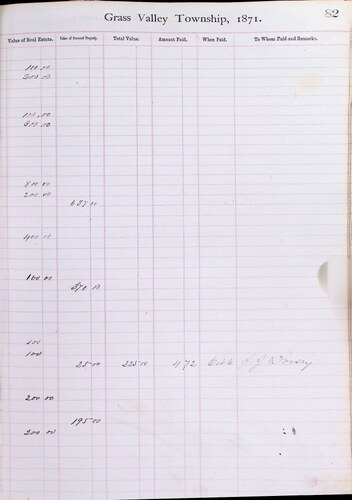 82
Grass Valley Township, 1871.
Value of Real Estate. Value of Personal Property. Total Value. Amount Paid. When Paid. To Whom Paid and Remarks.
100 00
200 00
100 00
500 00
800 00
200 00
635 00
400 00
100 00
370 00
100
100
25 00 225 00 4 72
200 00
195 00
200 00